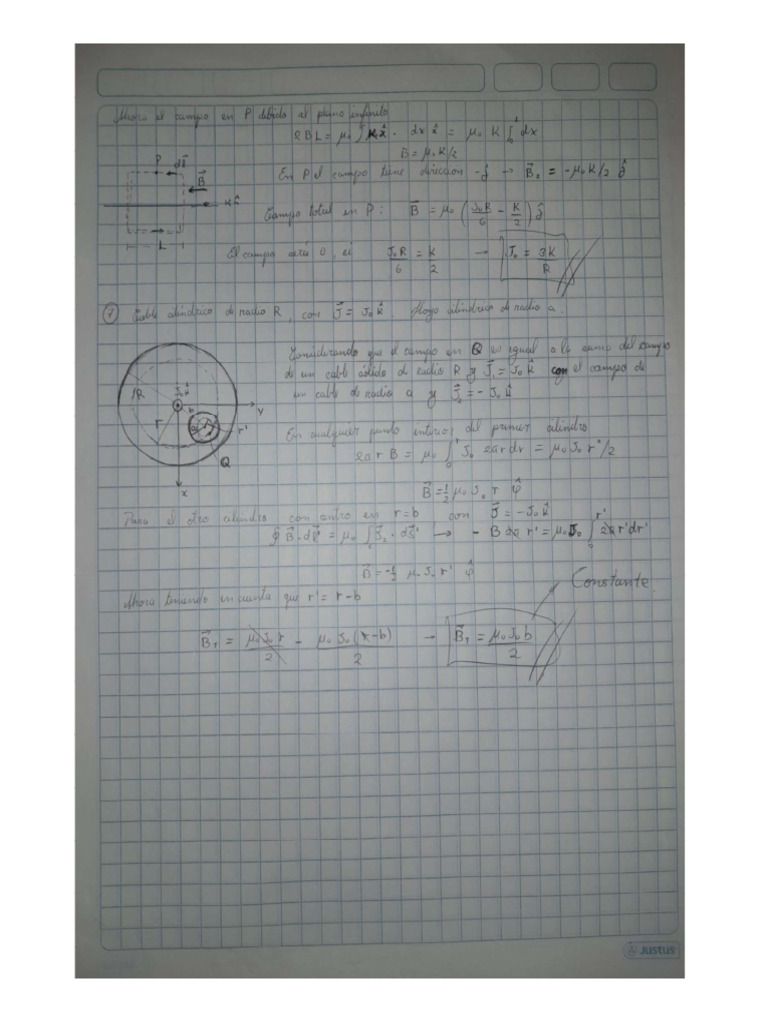 Ahora el campo en P debido al plano infinito
2BL = μ₀ ∫ K x̂ · dx x̂ = μ₀ K ∫₀ᴸ dx
B = μ₀K/2
P dℓ⃗
B⃗
K x̂
L
En P el campo tiene dirección -ĵ → B⃗₂ = -μ₀K/2 ĵ
Campo total en P: B⃗ = μ₀ (J₀R/6 - K/2) ĵ
El campo será 0, si J₀R/6 = K/2 → J₀ = 3K/R
7 Cable cilíndrico de radio R, con J⃗ = J₀ k̂. Hoyo cilíndrico de radio a.
R J₀k̂ b r a r' y
Q
x
Considerando que el campo en Q es igual a la suma del campo
de un cable sólido de radio R y J⃗₁ = J₀ k̂ con el campo de
un cable de radio a y J⃗₂ = - J₀ k̂
En cualquier punto interior del primer cilindro
2π r B = μ₀ ∫₀ʳ J₀ 2π r dr = μ₀ J₀ r²/2
B⃗ = 1/2 μ₀ J₀ r φ̂
Para el otro cilindro con centro en r = b con J⃗ = -J₀ k̂
∮ B⃗ · dℓ⃗' = μ₀ ∫ J⃗₂ · dS⃗' → - B 2π r' = μ₀ J₀ ∫₀ʳ' 2π r' dr'
B⃗ = -1/2 μ₀ J₀ r' φ̂
Ahora teniendo en cuenta que r' = r - b
Constante
B⃗_T = μ₀J₀r/2 - μ₀J₀(r-b)/2 → B⃗_T = μ₀J₀b/2
JUSTUS